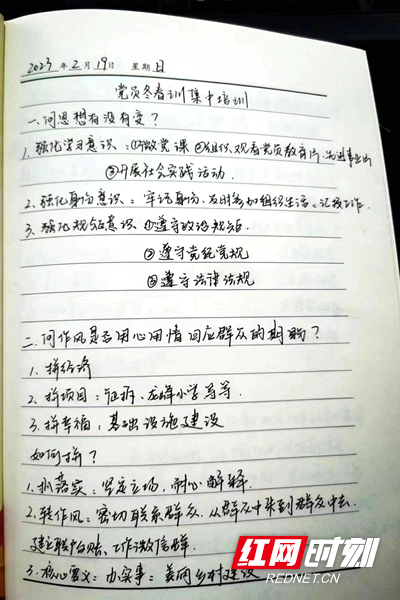 2023 年 2 月 19 日 星期 日
党员冬春训集中培训
一.问思想有没有变?
1. 强化学习意识:①微党课 ②组织观看党员教育片、先进事
③开展社会实践活动.
2. 强化身份意识: 牢记身份、及时参加组织生活、汇报工作.
3. 强化规矩意识 ①遵守政治规矩
② 遵守党纪党规
③ 遵守法律法规
二.问作风是否用心用情回应群众的期盼?
1. 拼经济
2. 拼项目: 征拆、龙峰小学等等.
3. 拼幸福: 基础设施建设
如何拼?
1. 抓落实: 坚定立场, 耐心解释.
2. 转作风: 密切联系群众、从群众中来到群众中去.
建立联户台账、工作微信群.
3. 核心要义: 办实事: 美丽乡村建设
红网时刻
REDNET.CN